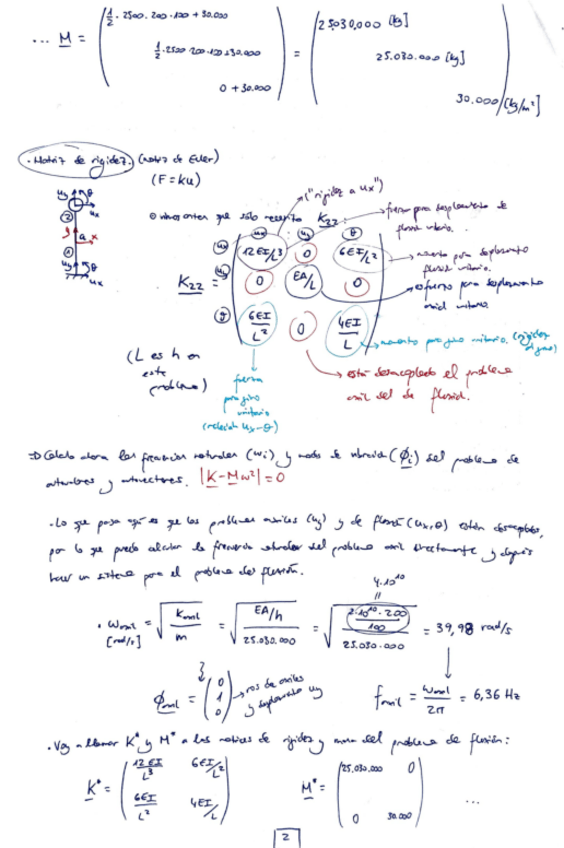 ... M = ( ½ · 2500 · 200 · 100 + 30.000
½ · 2500 · 200 · 100 + 30.000
0 + 30.000 ) = ( 25.030.000 [kg]
25.030.000 [kg]
30.000 [kg/m²] )
· Matriz de rigidez. (matriz de Euler)
(F = ku)
vimos antes que sólo necesito K22 :
("rigidez a ux")
fuerza para desplazamiento de flexión unitario.
momento para desplazamiento flexión unitario.
esfuerzo para desplazamiento axial unitario.
K22 = ( 12EI/L³ 0 6EI/L²
0 EA/L 0
6EI/L² 0 4EI/L )
momento para giro unitario. (rigidez al giro)
(L es h en este problema)
fuerza para giro unitario (relación ux-θ)
están desacoplado el problema axil del de flexión.
=> Calculo ahora las frecuencias naturales (ωi) y modos de vibración (ϕi) del problema de
autovalores y autovectores. |K-Mω²| = 0
· Lo que pasa aquí es que los problemas axiles (uy) y de flexión (ux, θ) están desacoplados,
por lo que puedo calcular la frecuencia natural del problema axil directamente y después
hacer un sistema para el problema de flexión.
4·10¹⁰
· ωaxil [rad/s] = √(Kaxil / m) = √(EA/h / 25.030.000) = √(2·10¹⁰ · 200 / 100 / 25.030.000) = 39,98 rad/s
ϕaxil = ( 0 1 0 ) → desplazamiento uy
faxil = ωaxil / 2π = 6,36 Hz
· Voy a llamar K* y M* a las matrices de rigidez y masa del problema de flexión:
K* = ( 12EI/L³ 6EI/L²
6EI/L² 4EI/L )
M* = ( 25.030.000 0
0 30.000 ) ...
2